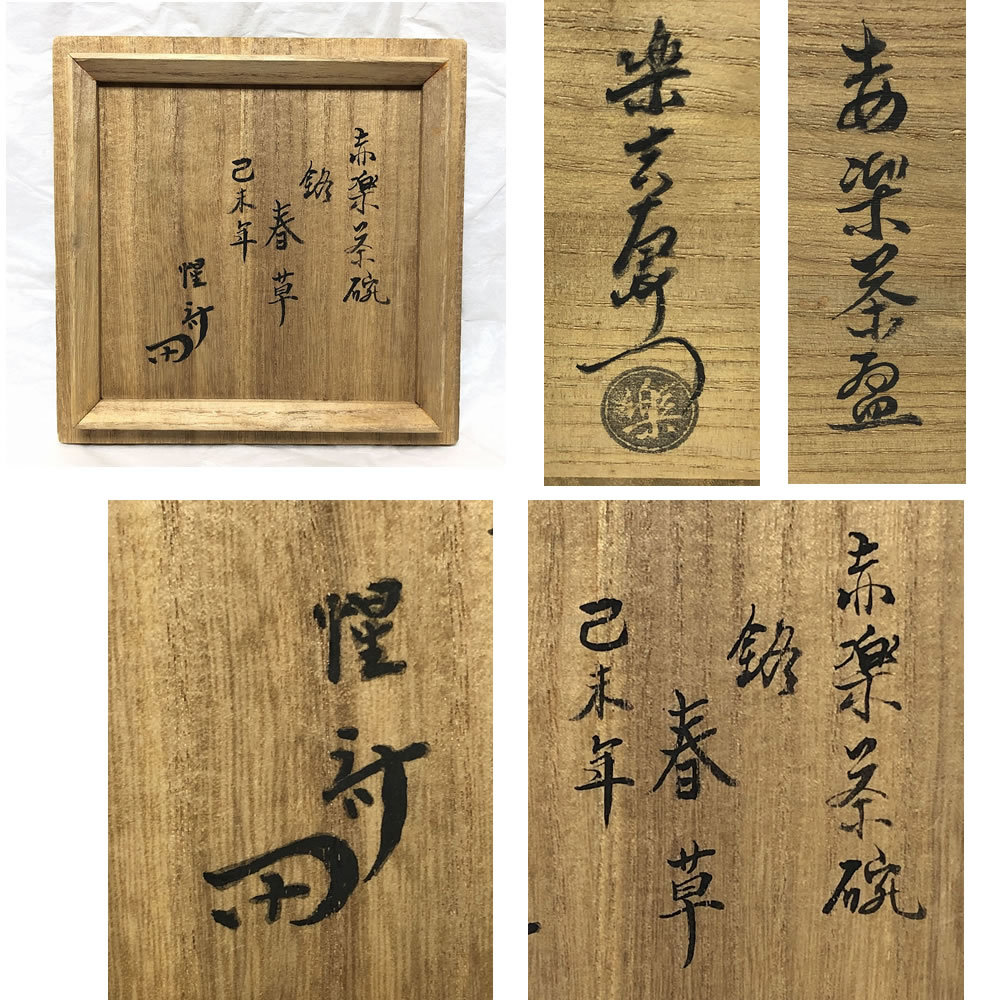 赤楽茶碗
銘
春草
己未年
惺斎
楽吉左衛門
楽
赤楽茶盌
惺斎
赤楽茶碗
銘
春草
己未年